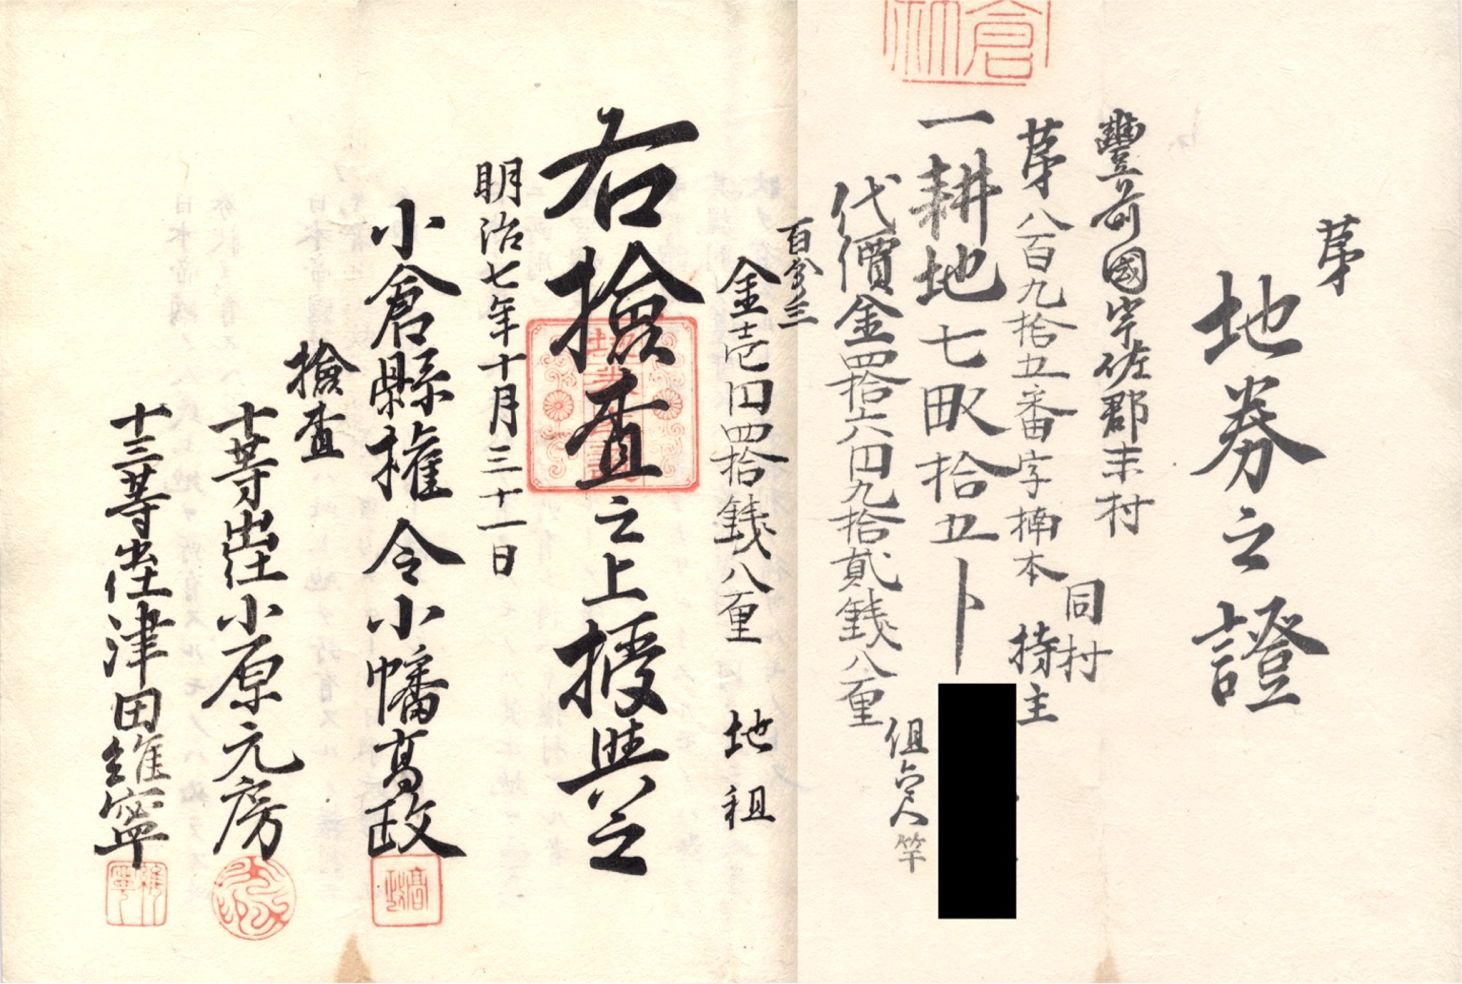 第
地券之證
豐前國宇佐郡末村
第八百九拾五番字楠本
同村
持主
一耕地七畝拾五卜
代價金四拾六円九拾貳錢八厘
百分三
金壱円四拾錢八厘
地租
右撿查之上授與之
明治七年十月三十一日
小倉縣權令小幡高政
撿査
十等出仕小原元房
十三等出仕津田維寧